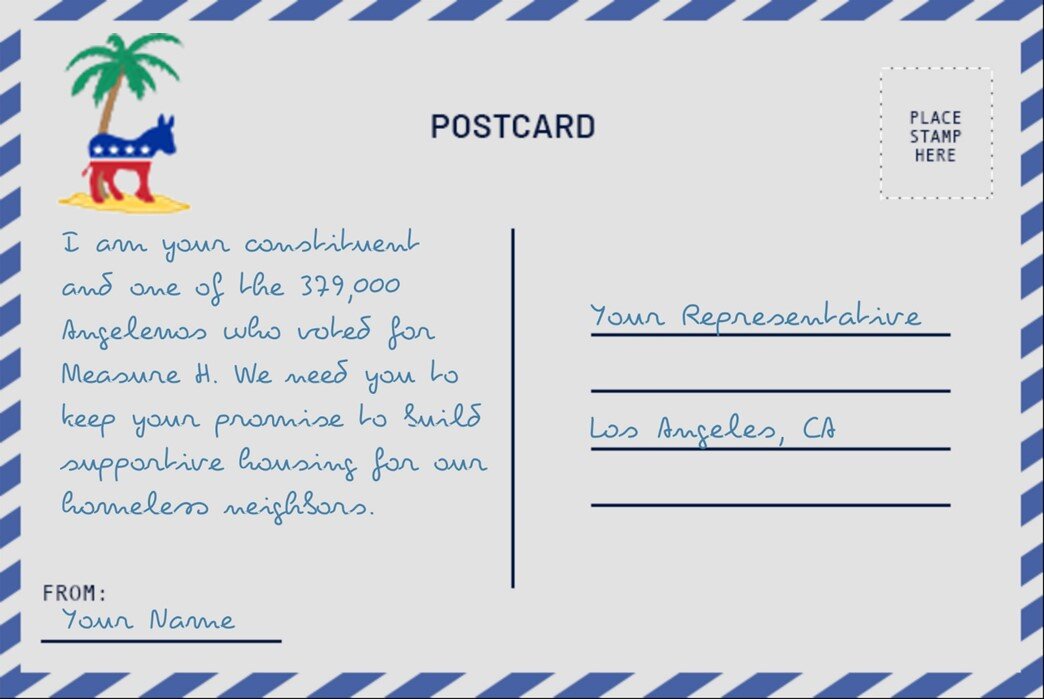 POSTCARD
PLACE
STAMP
HERE
I am your constituent
and one of the 379,000
Angelenos who voted for
Measure H. We need you to
keep your promise to build
supportive housing for our
homeless neighbors.
Your Representative
Los Angeles, CA
FROM:
Your Name